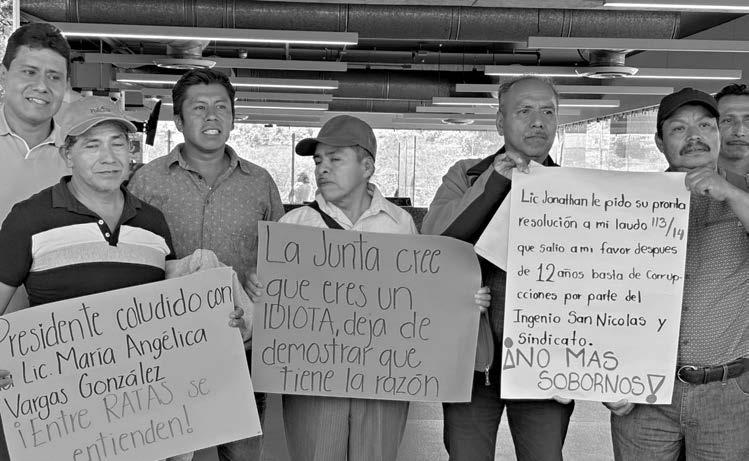 Presidente coludido con
Lic. Maria Angélica
Vargas González
¡Entre RATAS se
entienden!
La Junta cree
que eres un
IDIOTA, deja de
demostrar que
tiene la razón
Lic Jonathan le pido su pronta
resolución a mi laudo 113/14
que salio a mi favor despues
de 12 años basta de Corrup-
cciones por parte del
Ingenio San Nicolas y
Sindicato.
¡NO MAS
SOBORNOS!